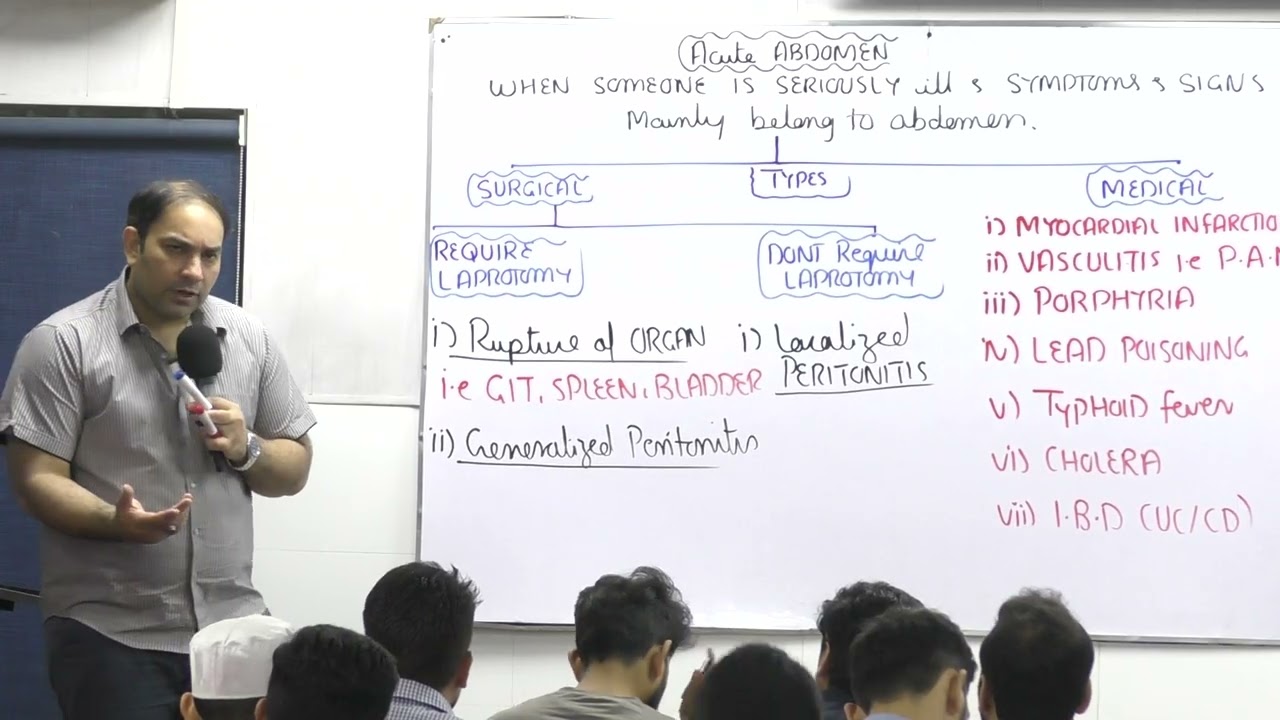 Acute ABDOMEN
WHEN SOMEONE IS SERIOUSLY ill & SYMPTOMS & SIGNS
Mainly belong to abdomen.
TYPES
SURGICAL
MEDICAL
REQUIRE
LAPROTOMY
DONT Require
LAPROTOMY
i) Rupture of ORGAN
i.e GIT, SPLEEN, BLADDER
ii) Generalized Peritonitis
i) Localized
PERITONITIS
i) MYOCARDIAL INFARCTIO
ii) VASCULITIS i.e P.A.N
iii) PORPHYRIA
iv) LEAD POISONING
v) TYPHOID fever
vi) CHOLERA
vii) I.B.D (UC/CD)